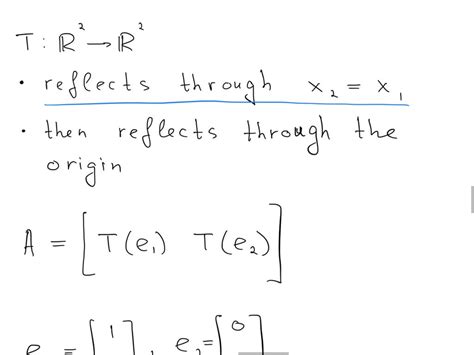 T: ℝ² → ℝ²
• reflects through x₂ = x₁
• then reflects through the
origin
A = [T(e₁) T(e₂)]
e = [1], e₂ = [0]